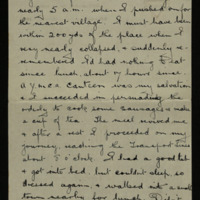 nearly 5 a.m. when I pushed on for
the nearest village. I must have been
within 200 yds of the place when I
very nearly collapsed, & suddenly re-
membered I'd had nothing to eat
since lunch about 17 hours since.
A Y.M.C.A. Canteen was my salvation
& I succeeded in persuading the
orderly to cook some sausages & make
a cup of tea. The meal revived me
& after a rest I proceeded on my
journey, reaching the Transport lines
about 8 o'clock. I had a good bath
& got into bed, but couldn't sleep so
dressed again & walked into a small
town nearby for lunch. Didn't